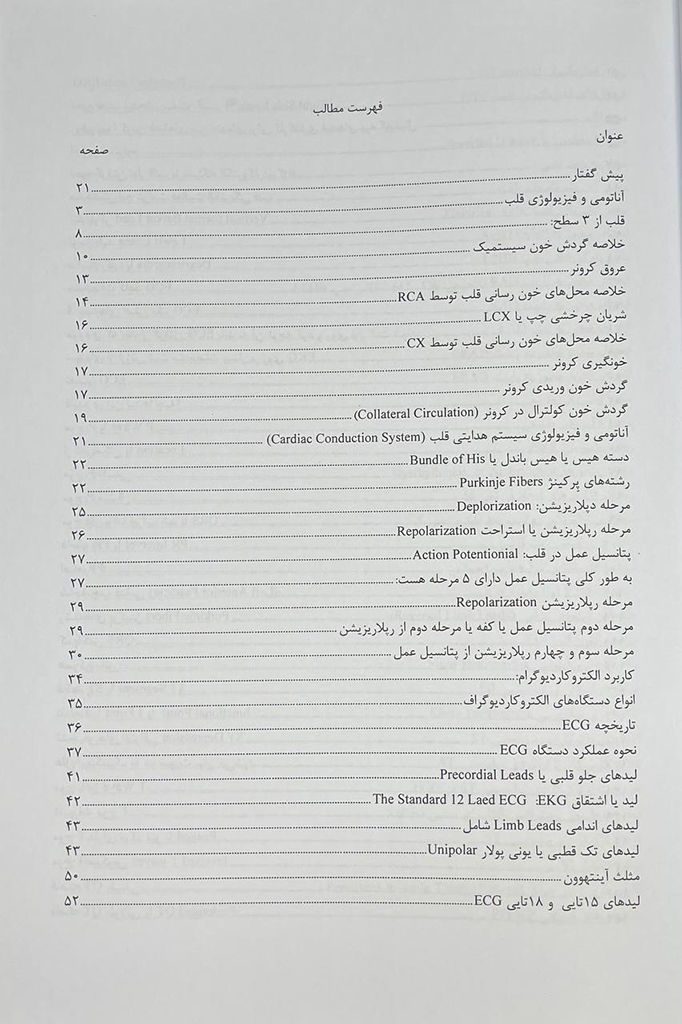 فهرست مطالب
عنوان
صفحه
پیش گفتار ..... ۲۱
آناتومی و فیزیولوژی قلب ..... ۳
قلب از ۳ سطح: ..... ۸
خلاصه گردش خون سیستمیک ..... ۱۰
عروق کرونر ..... ۱۳
خلاصه محل‌های خون رسانی قلب توسط RCA ..... ۱۴
شریان چرخشی چپ یا LCX ..... ۱۶
خلاصه محل‌های خون رسانی قلب توسط CX ..... ۱۶
خونگیری کرونر ..... ۱۷
گردش خون وریدی کرونر ..... ۱۷
گردش خون کولترال در کرونر (Collateral Circulation) ..... ۱۹
آناتومی و فیزیولوژی سیستم هدایتی قلب (Cardiac Conduction System) ..... ۲۱
دسته هیس یا هیس باندل یا Bundle of His ..... ۲۲
رشته‌های پرکینژ Purkinje Fibers ..... ۲۲
مرحله دپلاریزیشن: Deplorization ..... ۲۵
مرحله رپلاریزیشن یا استراحت Repolarization ..... ۲۶
پتانسیل عمل در قلب: Action Potentionial ..... ۲۷
به طور کلی پتانسیل عمل دارای ۵ مرحله هست: ..... ۲۷
مرحله رپلاریزیشن Repolarization ..... ۲۹
مرحله دوم پتانسیل عمل یا کفه یا مرحله دوم از رپلاریزیشن ..... ۲۹
مرحله سوم و چهارم رپلاریزیشن از پتانسیل عمل ..... ۳۰
کاربرد الکتروکاردیوگرام: ..... ۳۴
انواع دستگاه‌های الکتروکاردیوگراف ..... ۳۵
تاریخچه ECG ..... ۳۶
نحوه عملکرد دستگاه ECG ..... ۳۷
لیدهای جلو قلبی یا Precordial Leads ..... ۴۱
لید یا اشتقاق EKG: The Standard 12 Laed ECG ..... ۴۲
لیدهای اندامی Limb Leads شامل ..... ۴۳
لیدهای تک قطبی یا یونی پولار Unipolar ..... ۴۳
مثلث آینتهوون ..... ۵۰
لیدهای ۱۵تایی و ۱۸تایی ECG ..... ۵۲